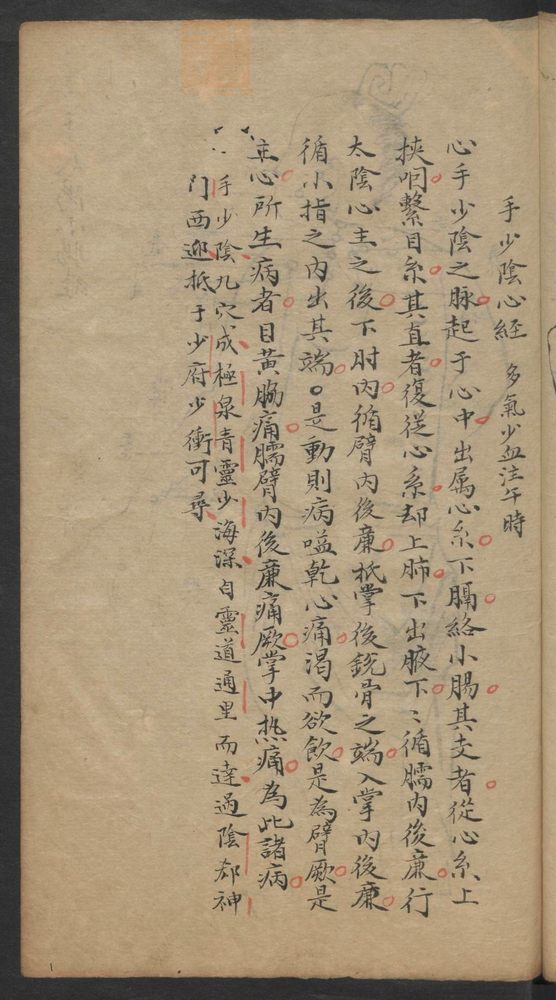 手少陰心經 多氣少血注午時
心手少陰之脉起于心中出属心系下膈絡小腸其支者從心系上
挾咽繫目系其直者復従心系却上肺下出腋下〻循臑内後廉行
太陰心主之後下肘内循臂内後廉抵掌後銳骨之端入掌内後廉
循小指之内出其端○是動則病嗌乾心痛渴而欲飲是為臂厥是
主心所生病者目黃脇痛臑臂内後廉痛厥掌中热痛為此諸病
手少陰九穴成極泉青靈少海深自靈道通里而達過陰郄神
门西迎抵于少府少衝可尋